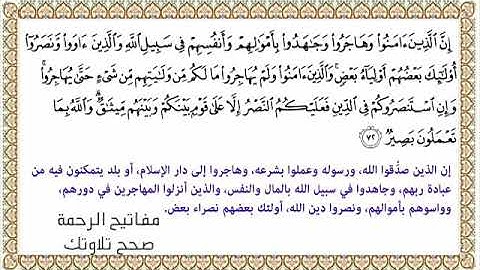 إِنَّ ٱلَّذِينَ ءَامَنُوا۟ وَهَاجَرُوا۟ وَجَٰهَدُوا۟ بِأَمْوَٰلِهِمْ وَأَنفُسِهِمْ فِى سَبِيلِ ٱللَّهِ وَٱلَّذِينَ ءَاوَوا۟ وَّنَصَرُوٓا۟
أُو۟لَٰٓئِكَ بَعْضُهُمْ أَوْلِيَآءُ بَعْضٍ ۚ وَٱلَّذِينَ ءَامَنُوا۟ وَلَمْ يُهَاجِرُوا۟ مَا لَكُم مِّن وَلَٰيَتِهِم مِّن شَىْءٍ حَتَّىٰ يُهَاجِرُوا۟ ۚ
وَإِنِ ٱسْتَنصَرُوكُمْ فِى ٱلدِّينِ فَعَلَيْكُمُ ٱلنَّصْرُ إِلَّا عَلَىٰ قَوْمٍۭ بَيْنَكُمْ وَبَيْنَهُم مِّيثَٰقٌ ۗ وَٱللَّهُ بِمَا
تَعْمَلُونَ بَصِيرٌ ٧٢
إن الذين صدَّقوا الله، ورسوله وعملوا بشرعه، وهاجروا إلى دار الإسلام، أو بلد يتمكنون فيه من
عبادة ربهم، وجاهدوا في سبيل الله بالمال والنفس، والذين أنزلوا المهاجرين في دورهم،
وواسوهم بأموالهم، ونصروا دين الله، أولئك بعضهم نصراء بعض.
مفاتيح الرحمة
صحح تلاوتك